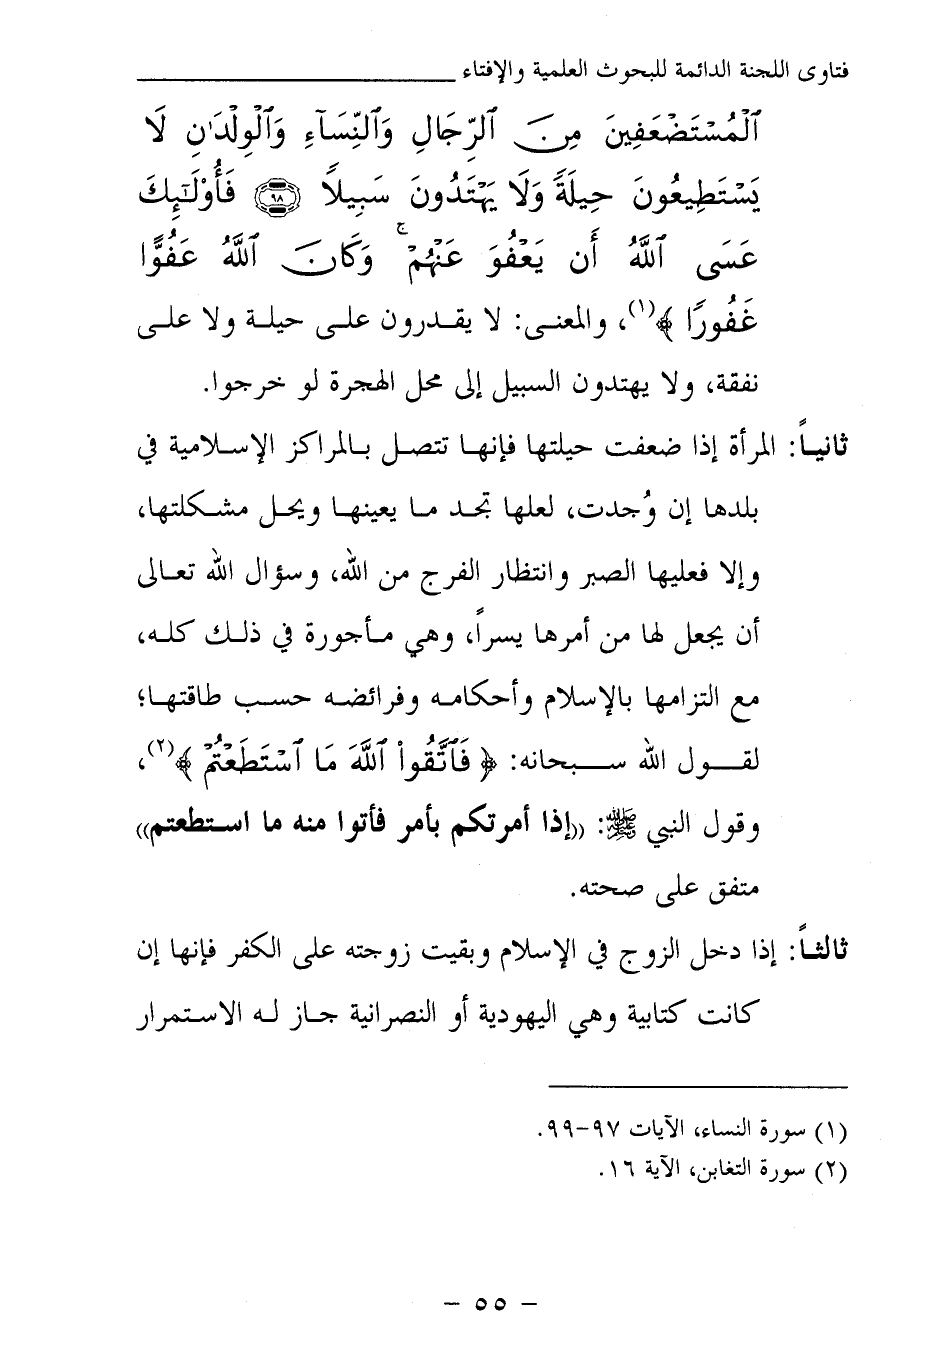 فتاوى اللجنة الدائمة للبحوث العلمية والإفتاء
ٱلْمُسْتَضْعَفِينَ مِنَ ٱلرِّجَالِ وَٱلنِّسَآءِ وَٱلْوِلْدَٰنِ لَا
يَسْتَطِيعُونَ حِيلَةً وَلَا يَهْتَدُونَ سَبِيلًا ٩٨ فَأُوْلَٰٓئِكَ
عَسَى ٱللَّهُ أَن يَعْفُوَ عَنْهُمْ ۚ وَكَانَ ٱللَّهُ عَفُوًّا
غَفُورًا ﴾(١)، والمعنى: لا يقدرون على حيلة ولا على
نفقة، ولا يهتدون السبيل إلى محل الهجرة لو خرجوا.
ثانياً: المرأة إذا ضعفت حيلتها فإنها تتصل بالمراكز الإسلامية في
بلدها إن وُجدت، لعلها تجد ما يعينها ويحل مشكلتها،
وإلا فعليها الصبر وانتظار الفرج من الله، وسؤال الله تعالى
أن يجعل لها من أمرها يسراً، وهي مأجورة في ذلك كله،
مع التزامها بالإسلام وأحكامه وفرائضه حسب طاقتها؛
لقول الله سبحانه: ﴿ فَٱتَّقُواْ ٱللَّهَ مَا ٱسْتَطَعْتُمْ ﴾(٢)،
وقول النبي ﷺ: ((إذا أمرتكم بأمر فأتوا منه ما استطعتم))
متفق على صحته.
ثالثاً: إذا دخل الزوج في الإسلام وبقيت زوجته على الكفر فإنها إن
كانت كتابية وهي اليهودية أو النصرانية جاز له الاستمرار
(١) سورة النساء، الآيات ٩٧-٩٩.
(٢) سورة التغابن، الآية ١٦.
- ٥٥ -